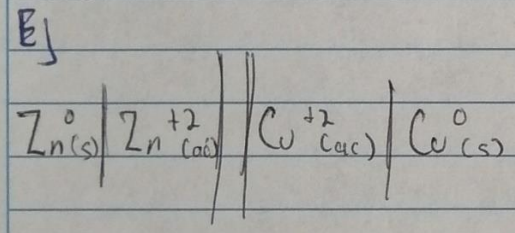 Ej
Zn⁰(s) | Zn⁺²(ac) || Cu⁺²(ac) | Cu⁰(s)